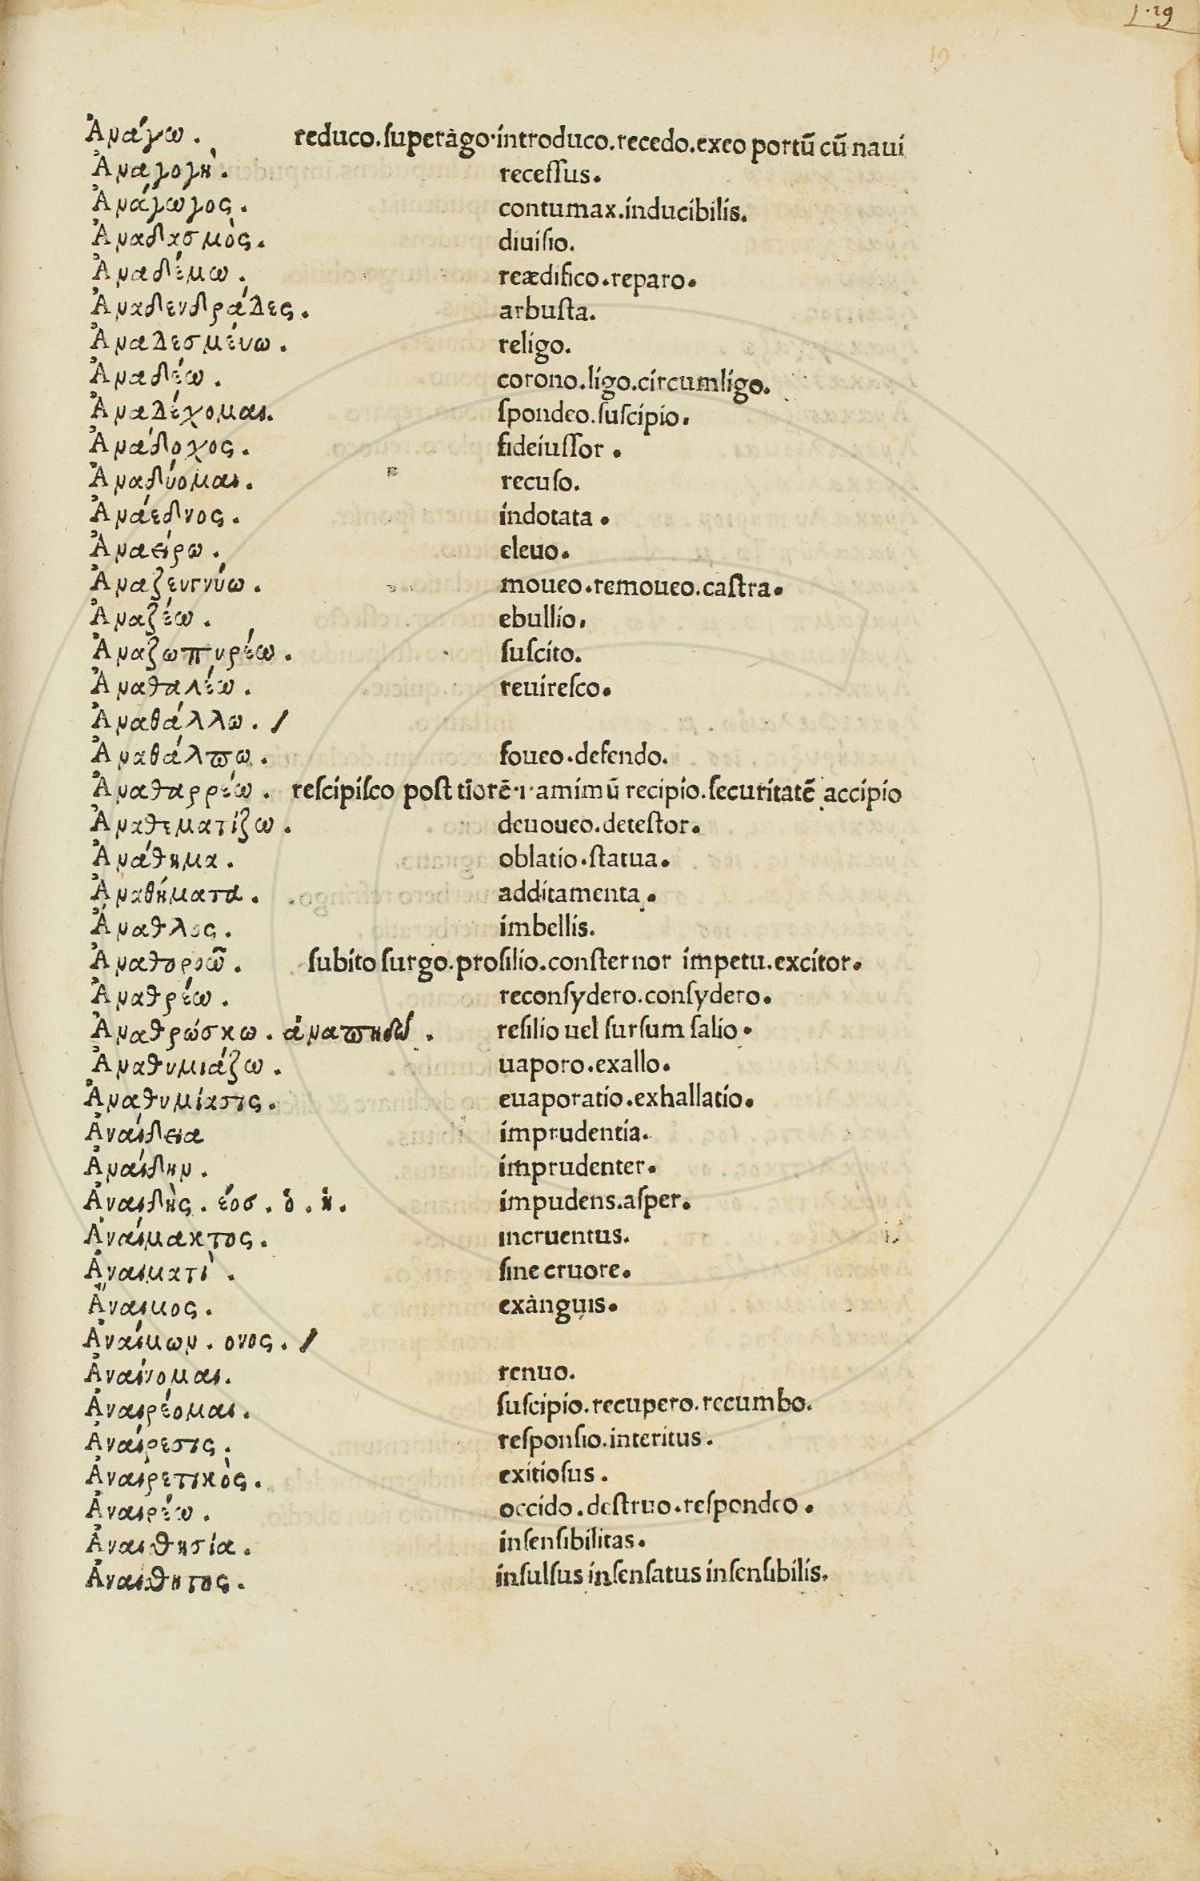 1·29
19
Ἀνάγω. reduco.ſuperago·introduco.recedo.exeo portũ cũ naui
Ἀναγογὴ. receſſus.
Ἀνάγωγος. contumax.inducibilis.
Ἀναδασμὸς. diuiſio.
Ἀναδέμω. reædifico.reparo.
Ἀναδενδράδες. arbuſta.
Ἀναδεσμένω. religo.
Ἀναδέω. corono.ligo.circumligo.
Ἀναδέχομαι. ſpondeo.ſuſcipio.
Ἀνάδοχος. fideiuſſor.
Ἀναδύομαι. recuſo.
Ἀνάεδνος. indotata.
Ἀναείρω. eleuo.
Ἀναζευγνύω. moueo.remoueo.caſtra.
Ἀναζέω. ebullio.
Ἀναζωπυρέω. ſuſcito.
Ἀναθαλέω. reuireſco.
Ἀναθάλλω. /
Ἀναθάλπω. foueo.defendo.
Ἀναθαρρέω. reſcipiſco poſt tĩorẽ·i·amimũ recipio.ſecuritatẽ accipio
Ἀναθεματίζω. deuoueo.deteſtor.
Ἀνάθημα. oblatio.ſtatua.
Ἀναθήματα. additamenta.
Ἄναθλος. imbellis.
Ἀναθορῶ. ſubito ſurgo.proſilio.conſternor impetu.excitor.
Ἀναθρέω. reconſydero.conſydero.
Ἀναθρώσκω. ἀναπηδῶ. reſilio uel ſurſum ſalio.
Ἀναθυμιάζω. uaporo.exallo.
Ἀναθυμίασις. euaporatio.exhallatio.
Ἀναίδεια imprudentia.
Ἀναίδην. imprudenter.
Ἀναιδὴς. έοσ. ὁ. ἡ. impudens.aſper.
Ἀναίμακτος. incruentus.
Ἀναιματὶ. ſine cruore.
Ἄναιμος. exanguis.
Ἀναίμων. ονος. /
Ἀναίνομαι. renuo.
Ἀναιρέομαι. ſuſcipio.recupero.recumbo.
Ἀναίρεσις. reſponſio.interitus.
Ἀναιρετικὸς. exitioſus.
Ἀναιρέω. occido.deſtruo.reſpondeo.
Ἀναισθησία. inſenſibilitas.
Ἀναισθητος. inſulſus inſenſatus inſenſibilis.